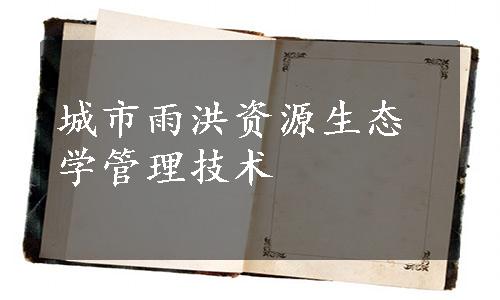 城市雨洪资源生态
学管理技术